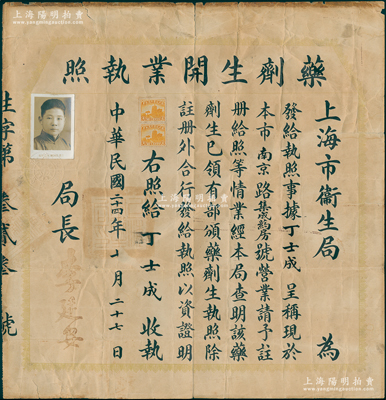 藥劑生開業執照
上海市衞生局 為
發給執照事據丁士成呈稱現於
本市南京路集成藥房號營業請予註
册給照等情業經本局查明該藥
劑生已領有部頒藥劑生執照除
註册外合行發給執照以資證明
右照給丁士成 收執
中華民國二十四年十月二十七日
局長 李廷安
生字第 叁貳叁 號
上海陽明拍賣
上海陽明拍賣